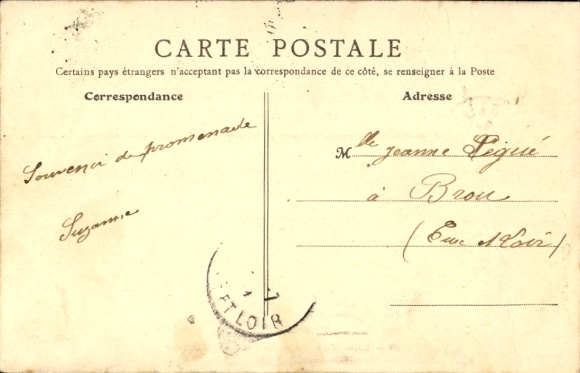 CARTE POSTALE
Certains pays étrangers n'acceptant pas la correspondance de ce côté, se renseigner à la Poste
Correspondance
Adresse
Souvenir de promenade
Suzanne
Mlle Jeanne Pégué
à Brou
(Eure et Loir)
ET LOIR